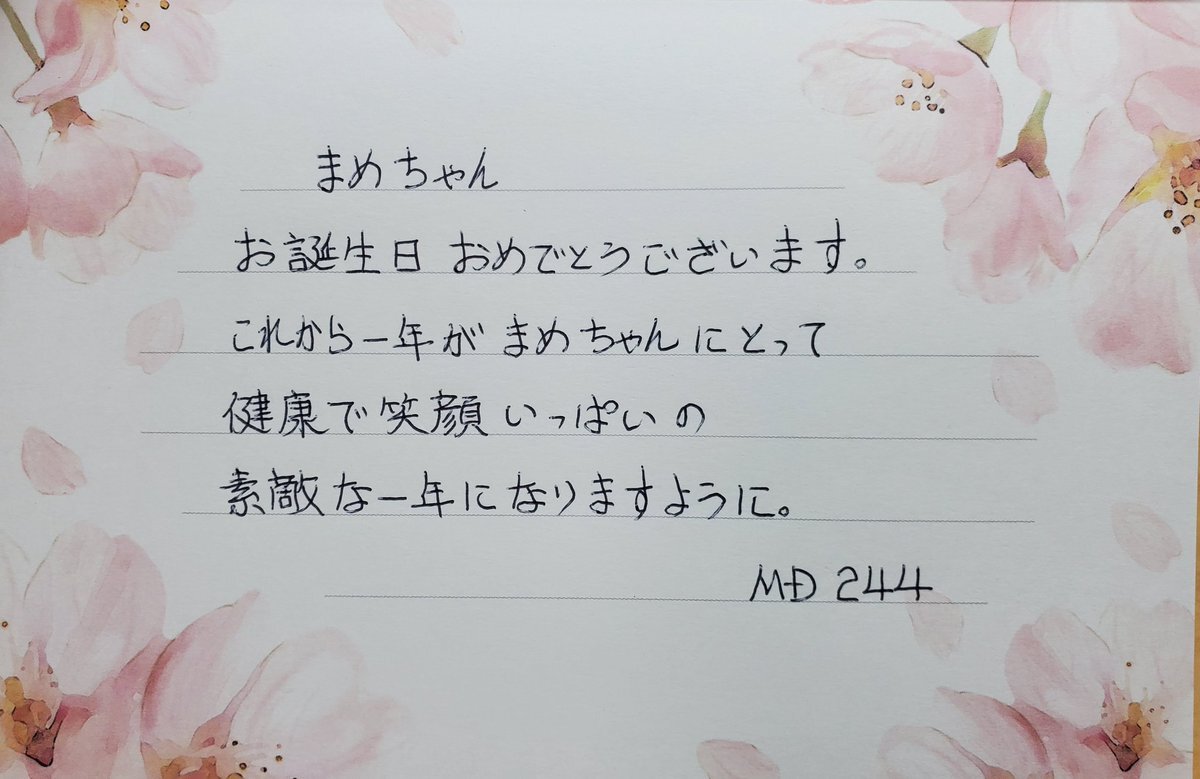 まめちゃん
お誕生日 おめでとうございます。
これから一年が まめちゃんにとって
健康で笑顔いっぱいの
素敵な一年になりますように。
MD 244